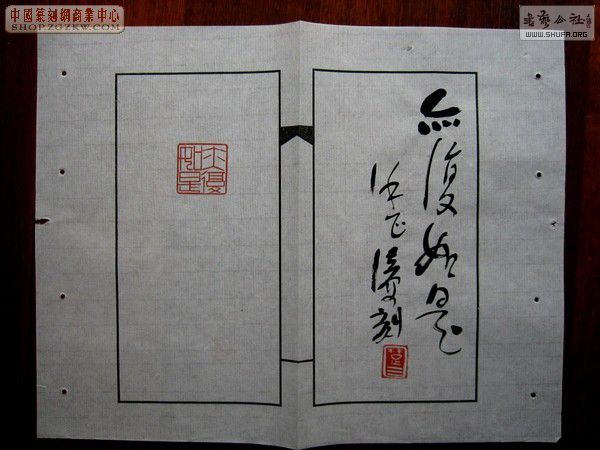 中國篆刻網商業中心
SHOP.ZGZKW.COM
書藝公社
WWW.SHUFA.ORG
亦復如是
刻
亦復如是